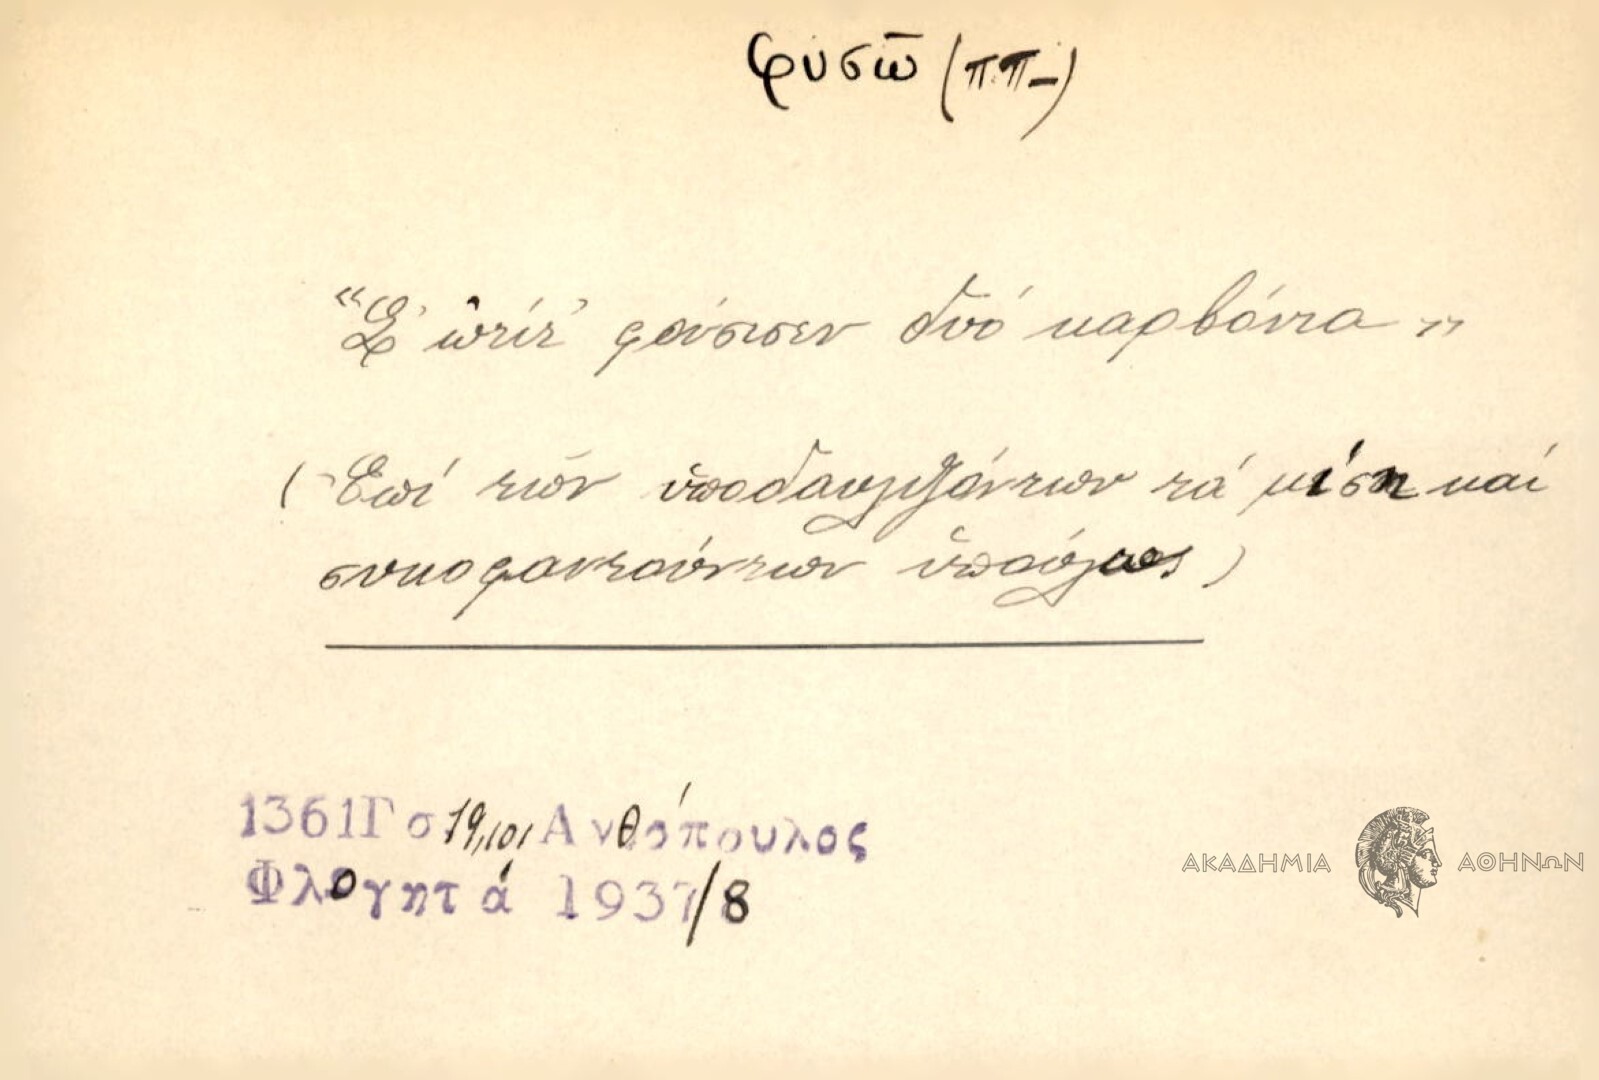 φυσῶ (ππ-)
φύσησεν δυό καρβόνια"
(Ἐπί τῶν ὑποδαυλιζόντων τά μίση καί
συκοφαντούντων ὑπούλως)
1361Γ σ 19,101 Ανθόπουλος
Φλογητά 1937/8
ΑΚΑΔΗΜΙΑ ΑΘΗΝΩΝ